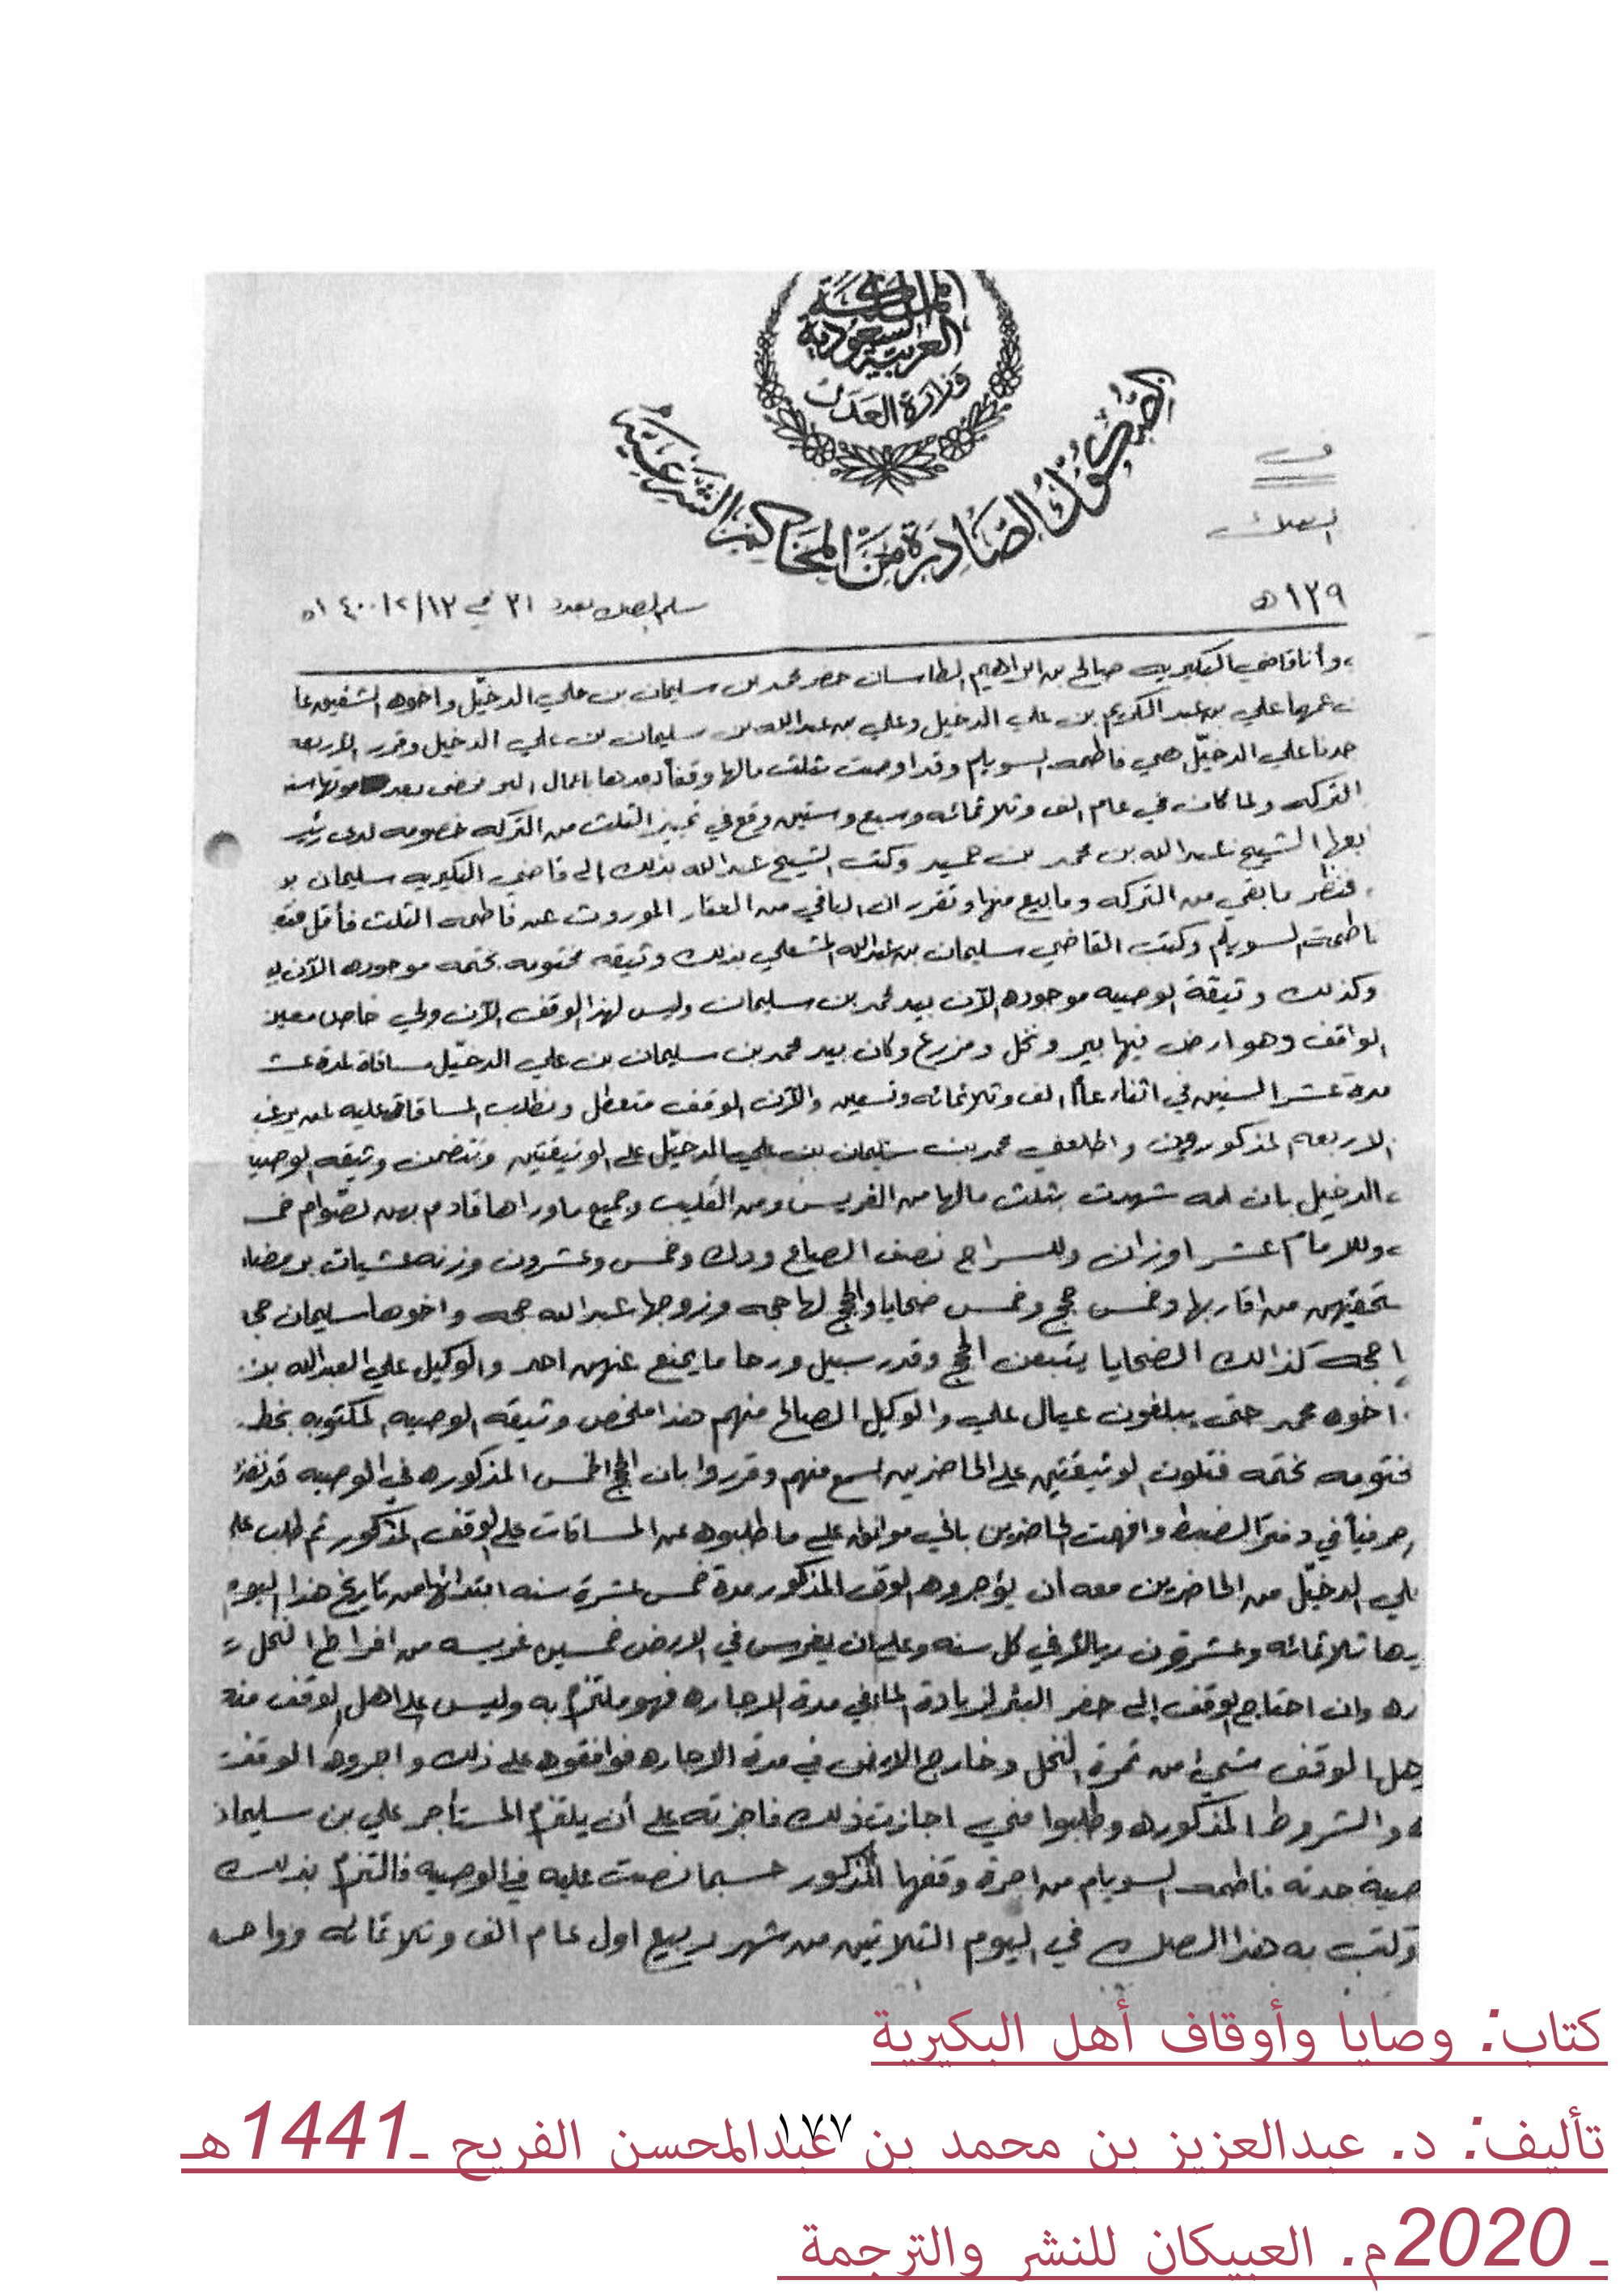 المملكة
العربية السعودية
وزارة العدل
الصكوك الصادرة من المحاكم الشرعية
١٣٩ هـ
سلم الصك بعدد ٣١ في ١٢/٢/١٤٠٠ه
وأنا قاضي البكيريه صالح بن ابراهيم الطاسان حضر محمد بن سليمان بن علي الدخيّل واخوه الشقيق
عمهما علي بن عبد الكريم بن علي الدخيل وعلي بن عبدالله بن سليمان بن علي الدخيل وقرر الاربعه
جدنا علي الدخيّل هي فاطمه السويلم وقد اوصت بثلث مالها وقفاً بعدها باعمال البر بعد موتها
التركه ولما كان في عام الف وثلاثمائه وسبع وستين وقع في تمييز الثلث من التركه خصومه لدى
الشيخ عبدالله بن محمد بن حميد وكتب الشيخ عبدالله بذلك إلى قاضي البكيريه سليمان
فنظر ما بقي من التركه وما بيع منها وتقرر ان الباقي من العقار الموروث عن فاطمه الثلث فأقل
السويلم وكتب القاضي سليمان بن عبدالله المشعلي بذلك وثيقه مختومه بختمه موجوده الآن
وكذلك وثيقة الوصيه موجوده الآن بيد محمد بن سليمان وليس لهذا الوقف الآن ولي خاص معين
الواقف وهو ارض فيها بير ونخل ومزرع وكان بيد محمد بن سليمان بن علي الدخيّل مساقاة لمدة
مدة عشر السنين في اثناء عام الف وثلاثمائه وتسعين والآن الوقف متعطل ونطلب المساقاة عليه لمن يرغب
الاربعه المذكورون واطلعني محمد بن سليمان بن علي الدخيّل على الوثيقتين وتتضمن وثيقه الوصيه
الدخيل بان امه شهدت بثلث مالها من الغريس ومن القليب وجميع ماوراها قادم بهن لصوام
وللامام عشر اوزان وللسراج نصف الصاع وودك وخمس وعشرون وزنه عشيات برمضان
من اقاربها وخمس حجج وخمس ضحايا والحج لها حجه وزوجها عبدالله حجه واخوها سليمان
حجه كذالك الضحايا يتبعن الحج وقدر سبيل ورحا ما يمنع عنهن احد والوكيل علي العبدالله
اخوه محمد حتى يبلغون عيال علي والوكيل الصالح منهم هذا ملخص وثيقه الوصيه المكتوبه بخط
بختمه فتلوت الوثيقتين على الحاضرين اسمع منهم وقرروا بان الحج الخمس المذكوره في الوصيه قد
في دفتر الضبط وافهمت الحاضرين باني موافق على ما طلبوه من المساقات على الوقف المذكور ثم طلب
علي الدخيّل من الحاضرين معه أن يؤجروه الوقف المذكور مدة خمس عشرة سنه ابتدائها من تاريخ هذا اليوم
ثلاثمائه وعشرون ريالاً في كل سنه وعلي ان يغرس في الارض خمسين غريسه من افراط النخل
وان احتاج الوقف إلى حفر البئر لزيادة الماء في مدة الاجاره فهو ملتزم به وليس على اهل الوقف منه
الوقف شيئ من ثمرة النخل وخارج الارض في مدة الاجاره فوافقوه على ذلك واجروه الوقف
والشروط المذكوره وطلبوا مني اجازت ذلك فاجزته على أن يلتزم المستأجر علي بن سليمان
جدته فاطمه السويلم من اجرة وقفها المذكور حسبما نصت عليه في الوصيه فالتزم بذلك
به هذا الصك في اليوم الثلاثين من شهر ربيع اول عام الف وثلاثمائه
كتاب: وصايا وأوقاف أهل البكيرية
١٧٧
تأليف: د. عبدالعزيز بن محمد بن عبدالمحسن الفريح ـ1441هـ
ـ 2020م. العبيكان للنشر والترجمة